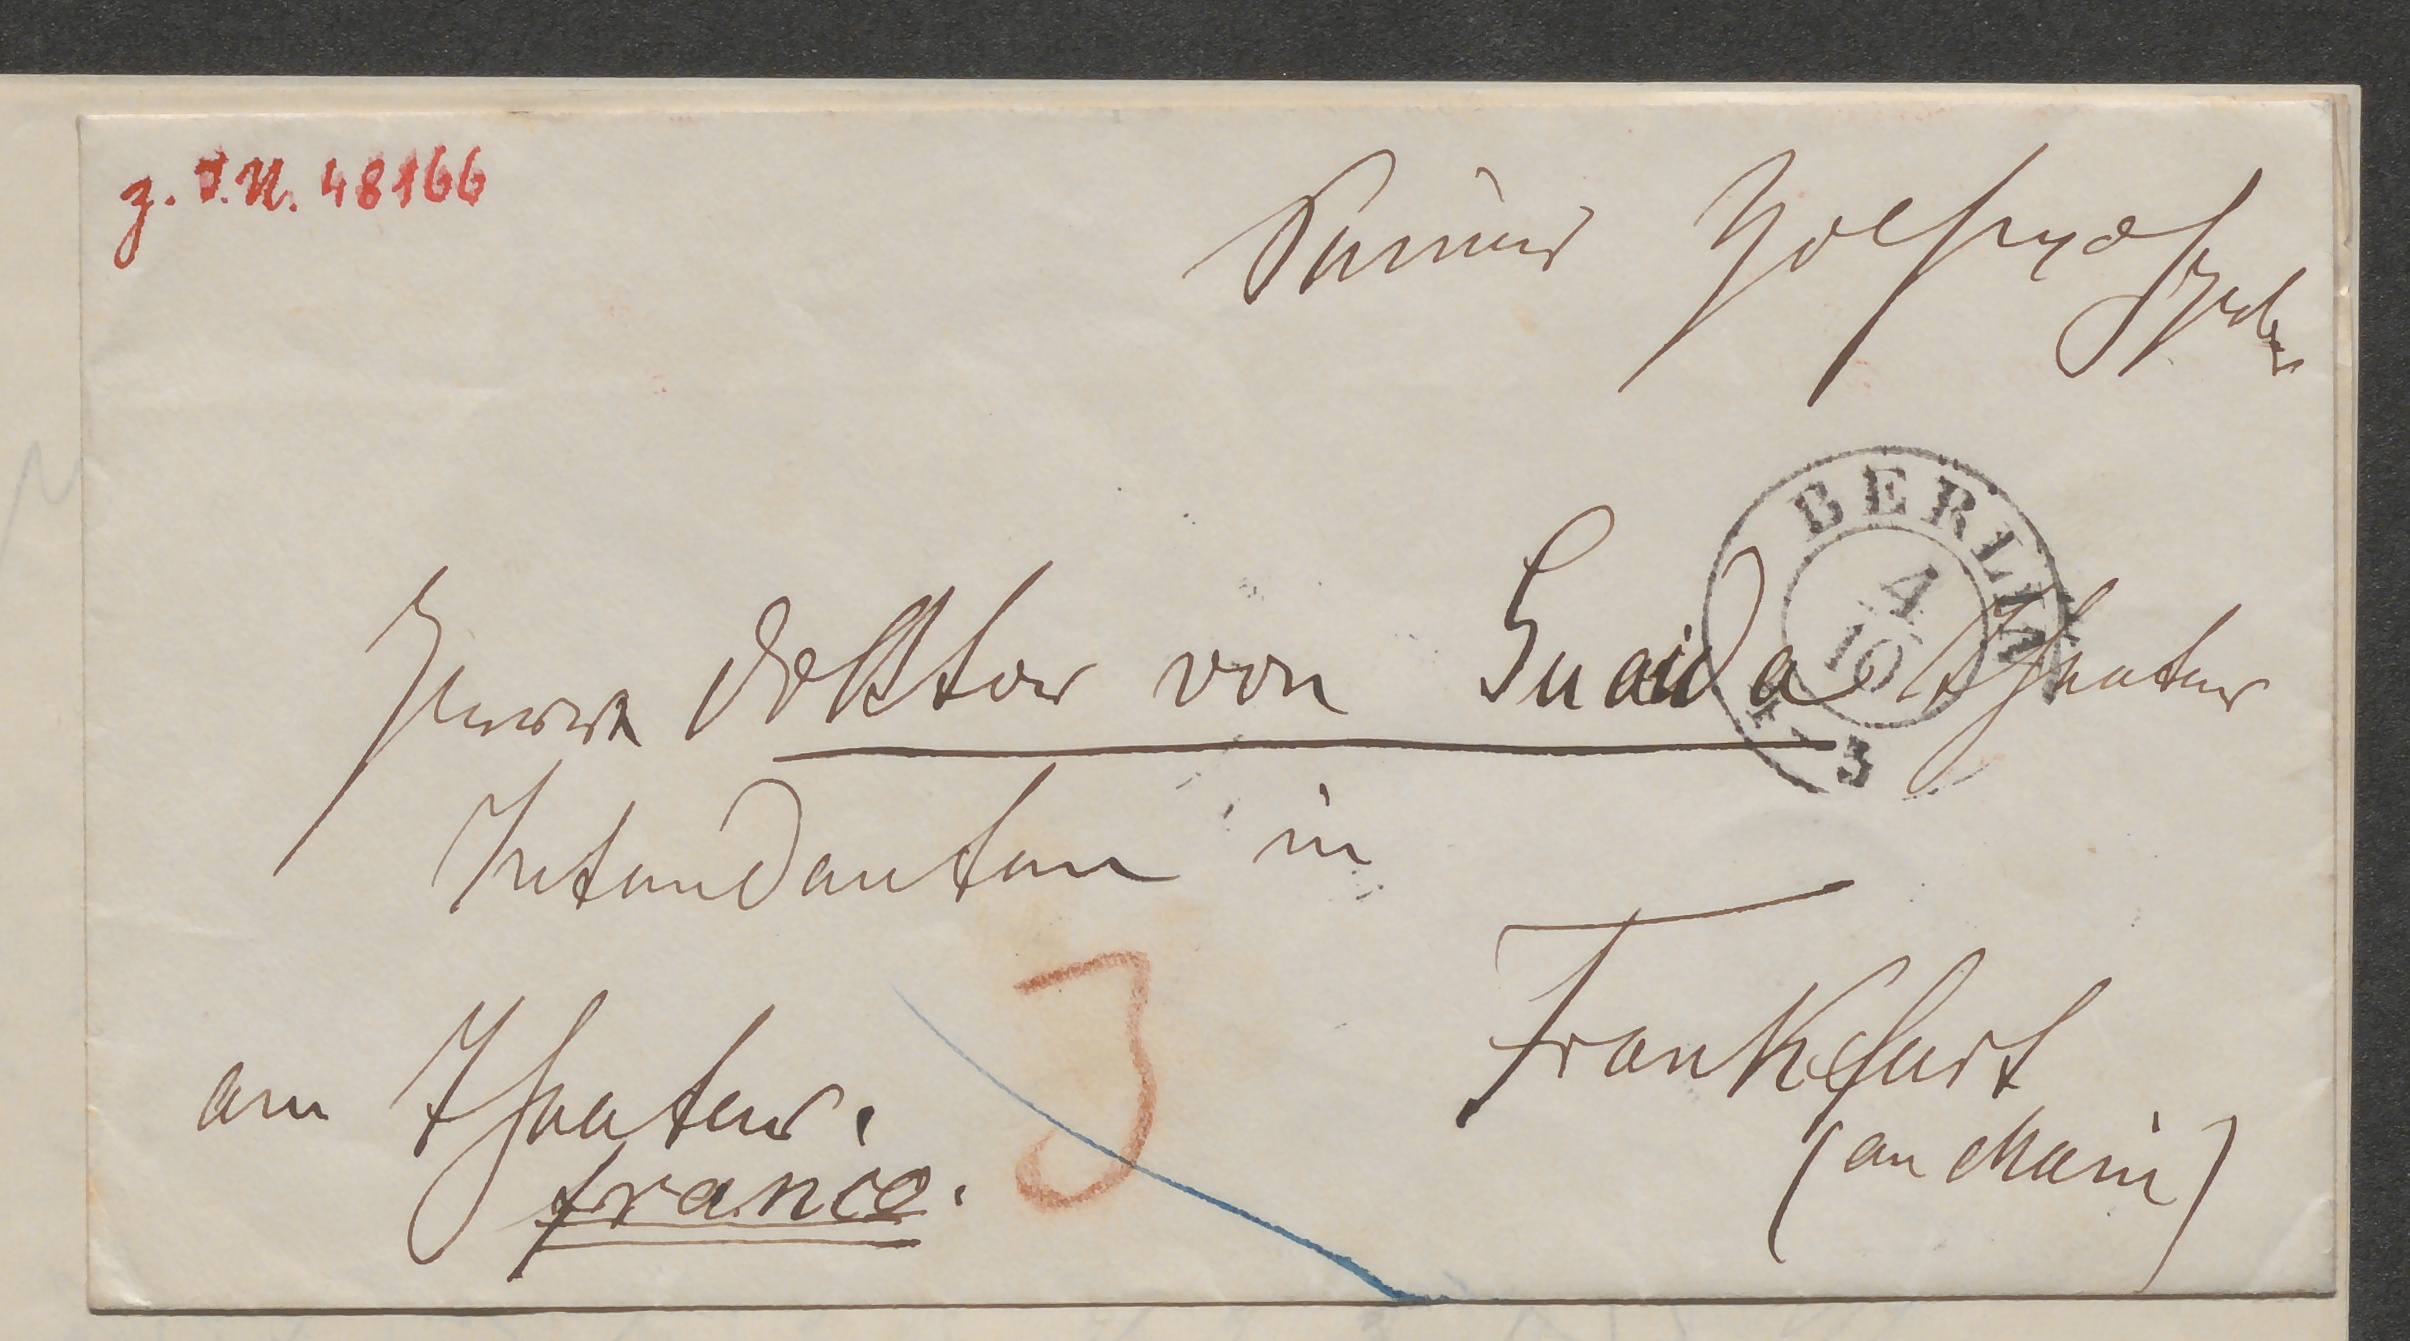 z. I.N. 48166
Seiner Hochwohl
geboren
BERLIN
4
10
4-5
Herrn Doktor von Guaita Theater
Intendanten in
Frankfurt
am Theater.
(am Main)
franco.
3